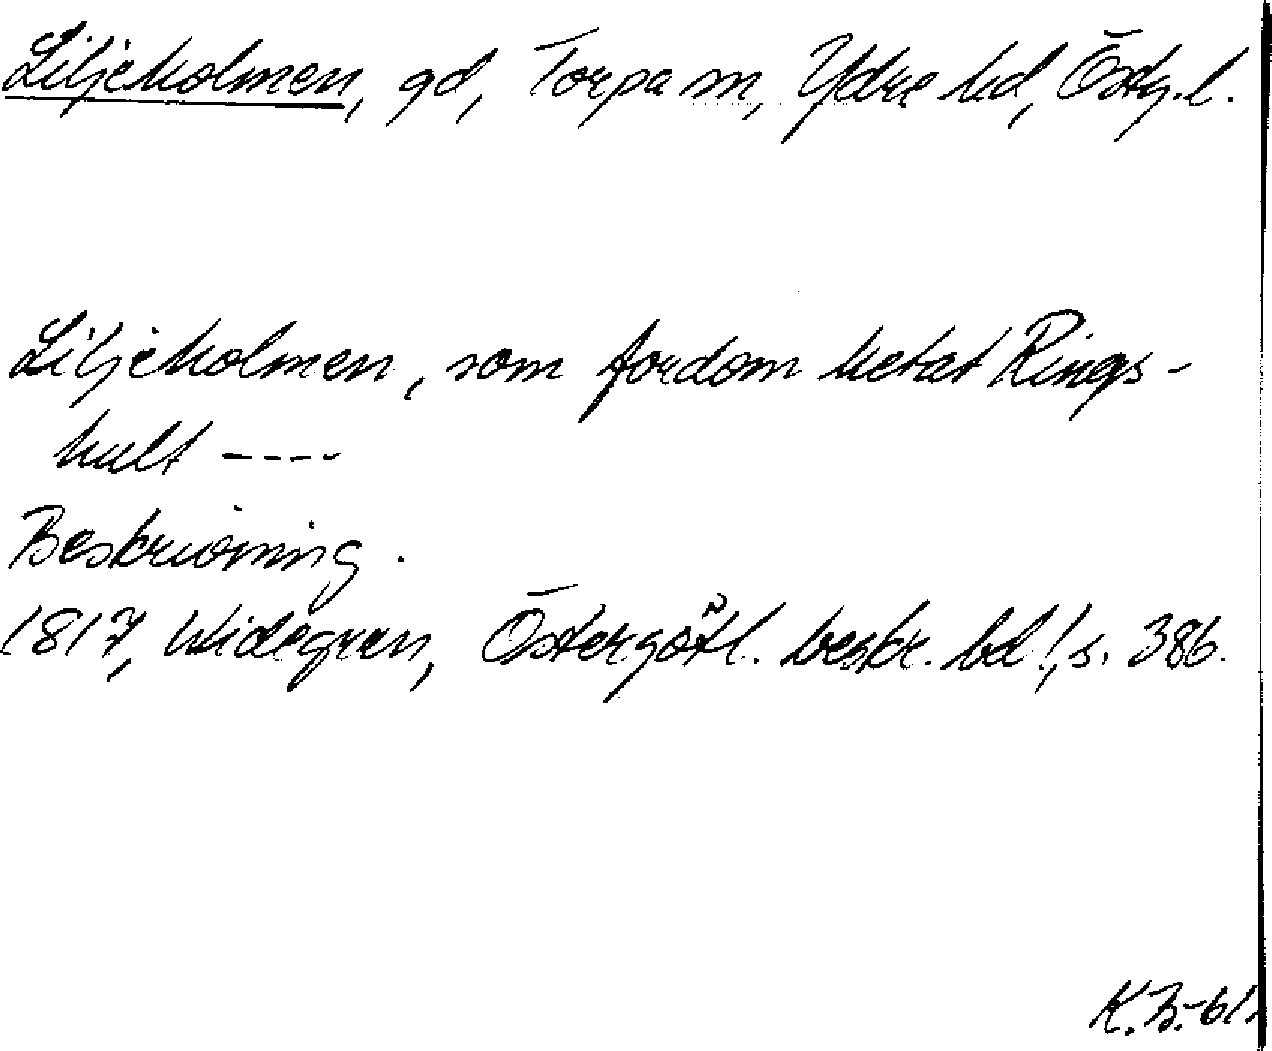 Liljeholmen, gd, Torpa sn, Ydre hd, Östg.l.
Liljeholmen, som fordom hetat Rings-
hult ----
Beskrivning.
1817, Widegren, Östergötl. beskr. bd 1, s. 386.
K.B.-61